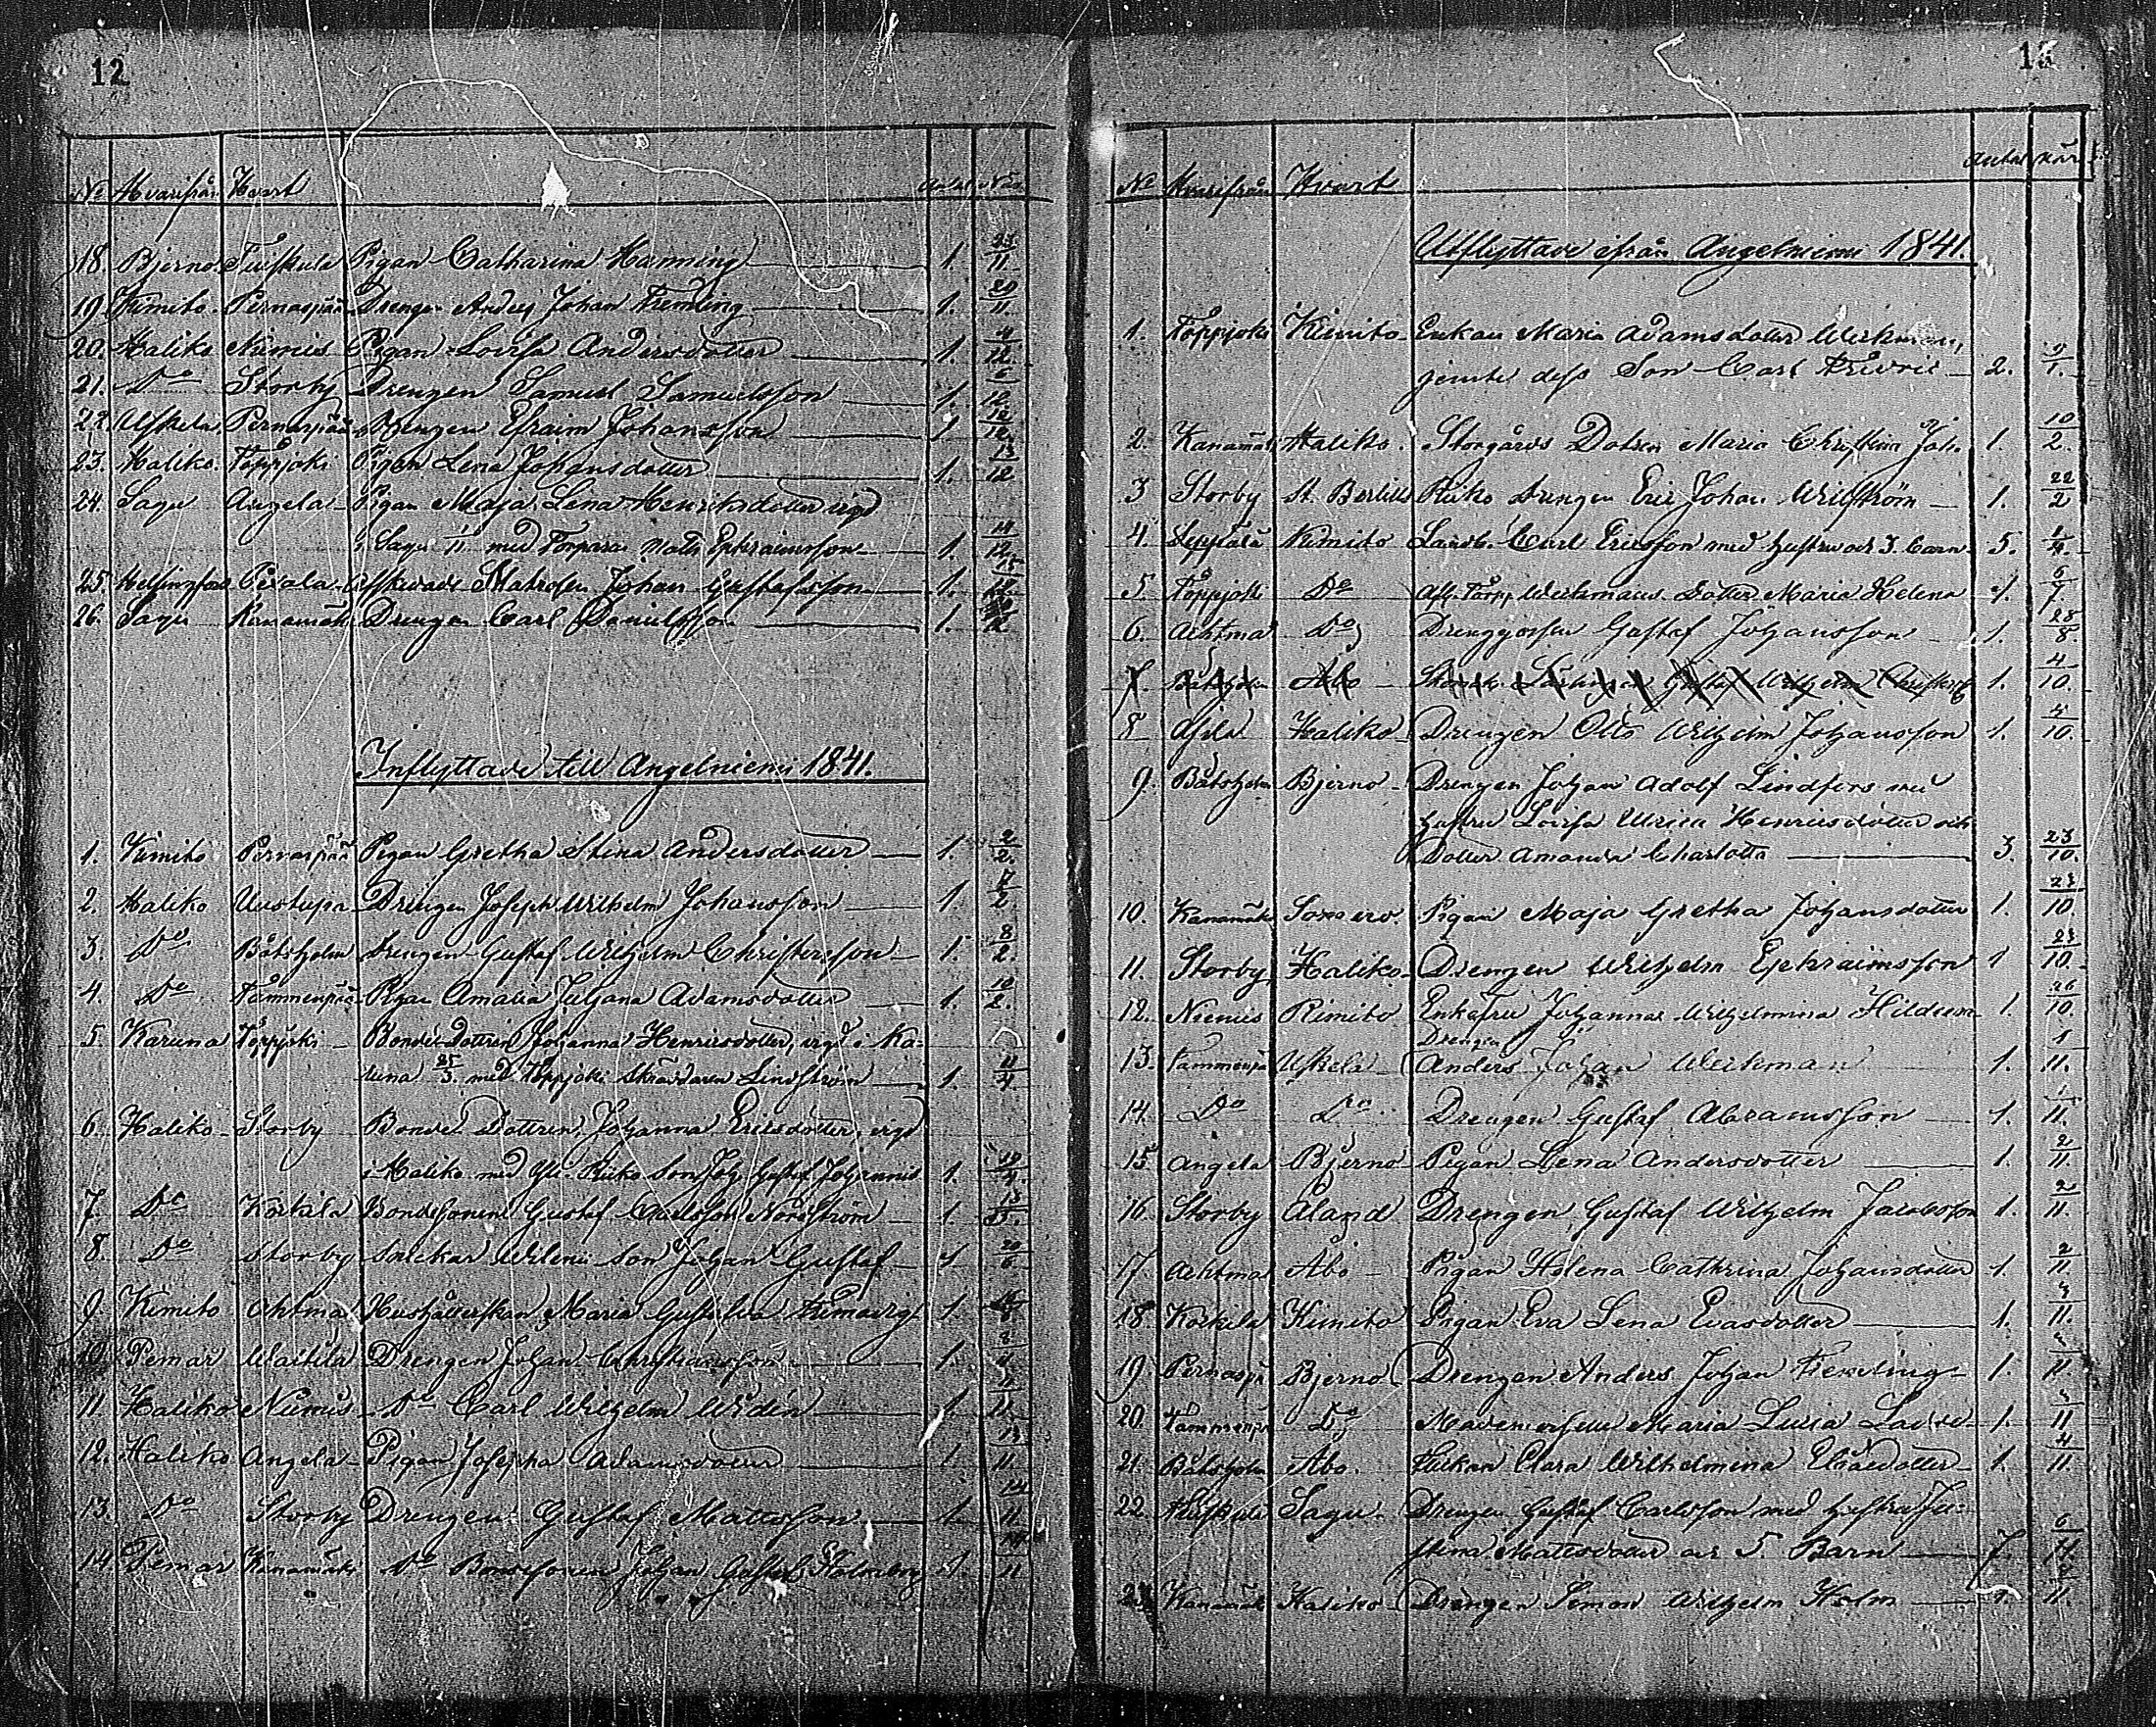 12
No Hvarifrån Hvart Antal När
18. Bjerno. Tuiskula Pigan Catharina Hamning 1. 23/11.
19. Kimito. Pernaspää Drengen Anders Johan Flemling 1. 20/11.
20. Haliko Niemis Pigan Lovisa Andersdotter 1. 4/12.
21. Do Storby Drengen Samuel Samuelsson 1. 6/12
22. Uskela. Pernaspää Drengen Efraim Johansson 1. 12/12.
23. Haliko. Toppjoki Pigan Lena Johansdotter 1. 13/12
24. Sagu Angela Pigan Maja Lena Henriksdotter vigd
i Sagu med Torparen Matts Ephraimsson 1. 14/12.
25. Helsingfors Pexala Matrosen Johan Gustafsson 1.
26. Sagu Kanamäki Drengen Carl Danielsson 1.
Inflyttade till Angelniemi 1841.
1. Kimito Pernaspää Pigan Gretha Stina Andersdotter 1. 2/2.
2. Haliko Uustupa Drengen Joseph Wilhelm Johansson 1.
3. Do Båtsholm Drengen Gustaf Wilhelm Christersson 1. 8/2.
4. Do Tammenpää Pigan Amalia Juljana Adamsdotter 1. 10/2.
5. Karuna Toppjoki Bonde Dottren Johanna Henricsdotter, vigd i Ka-
runa 25/3. med Toppjoki Skräddaren Lindström 1. 11/4
6. Haliko Storby Bonde Dottren Johanna Ericsdotter, vigd
i Haliko med Riiko Son Joh. Gustaf Johannis 1. 10/4.
7. Do Korkila Bondesonen Gustaf Carlsson Nordström 1.
8. Do Storby Snickar Wilenii Son Johan Gustaf 1. 20/6
9. Kimito Ahtma Hushållerskan Maria Gustava 1.
10. Pemar Waltila Drengen Johan Christiansson 1.
11. Haliko Niemis Do Carl Wilhelm Widén 1. 11.
12. Haliko Angela Pigan Josepha Adamsdotter 1. 13/11
13. Do Storby Drengen Gustaf Mattsson 1. 14/11
14 Pemar Kanamäki Do Bondesonen Johan Gustaf Holmberg 1. 14/11
13
No Hvarifrån Hvart Antal När
Utflyttade ifrån Angelniemi 1841.
1. Toppjoki Kimito Enkan Maria Adamsdotter Weckman,
jemte dess Son Carl Fredric 2. 9/1.
2. Kanamäki Haliko. Storgårds Dottren Maria Christina Joh. 1. 10/2.
3 Storby St. Bertils Riiko Drengen Eric Johan Widström 1. 22/2
4. Seppälä Kimito Landb. Carl Ericsson med hustru och 3. barn. 5.
5. Toppjoki Do Afl. Torp. Weckmans Dotter Maria Helena 1. 6/7.
6. Achtma Do Drenggossen Gustaf Johansson 1. 28/8.
7. Båtsholm Åbo Gustaf Wilhelm 1. 4/10.
8 Åsila Haliko Drengen Otto Wilhelm Johansson 1. 4/10.
9. Båtsholm Bjerno Drengen Johan Adolf Lindfors med
hustru Lovisa Ulrica Henricsdotter och
Dotter Amanda Charlotta 3. 23/10.
10. Kanamäki Somero. Pigan Maja Gretha Johansdotter 1. 23/10.
11. Storby Haliko Drengen Wilhelm Ephraimsson 1 23/10.
12. Niemis Rimito Enkefru Johanna Wilhelmina Hildeen 1. 26/10.
Drengen
13. Tammenpä Uskela Anders Johan Weckman 1. 1/11.
14. Do Do Drengen Gustaf Abramsson 1. 1/11.
15 Angela Bjerno Pigan Lena Andersdotter 1. 2/11.
16. Storby Åland Drengen Gustaf Wilhelm Jacobsson 1. 2/11.
17. Achtma Åbo Pigan Helena Cathrina Johansdotter 1. 2/11
18 Korkila Kimito Pigan Eva Lena Evasdotter 1. 3/11.
19. Pernaspä Bjerno Drengen Anders Johan Flemling 1. 3/11.
20. Tammenpä Do Mademoiselle Maria Lovisa 1. 3/11
21. Båtsholm Åbo. Pigan Clara Wilhelmina 1. 4/11.
22. Tuiskula Sagu. Drengen Gustaf Carlsson med hustru Ju-
stina Mattsdotter och 5. Barn 7. 6/11.
23. Kanamäki Haliko Drengen Simon Wilhelm Holm 1. 11.